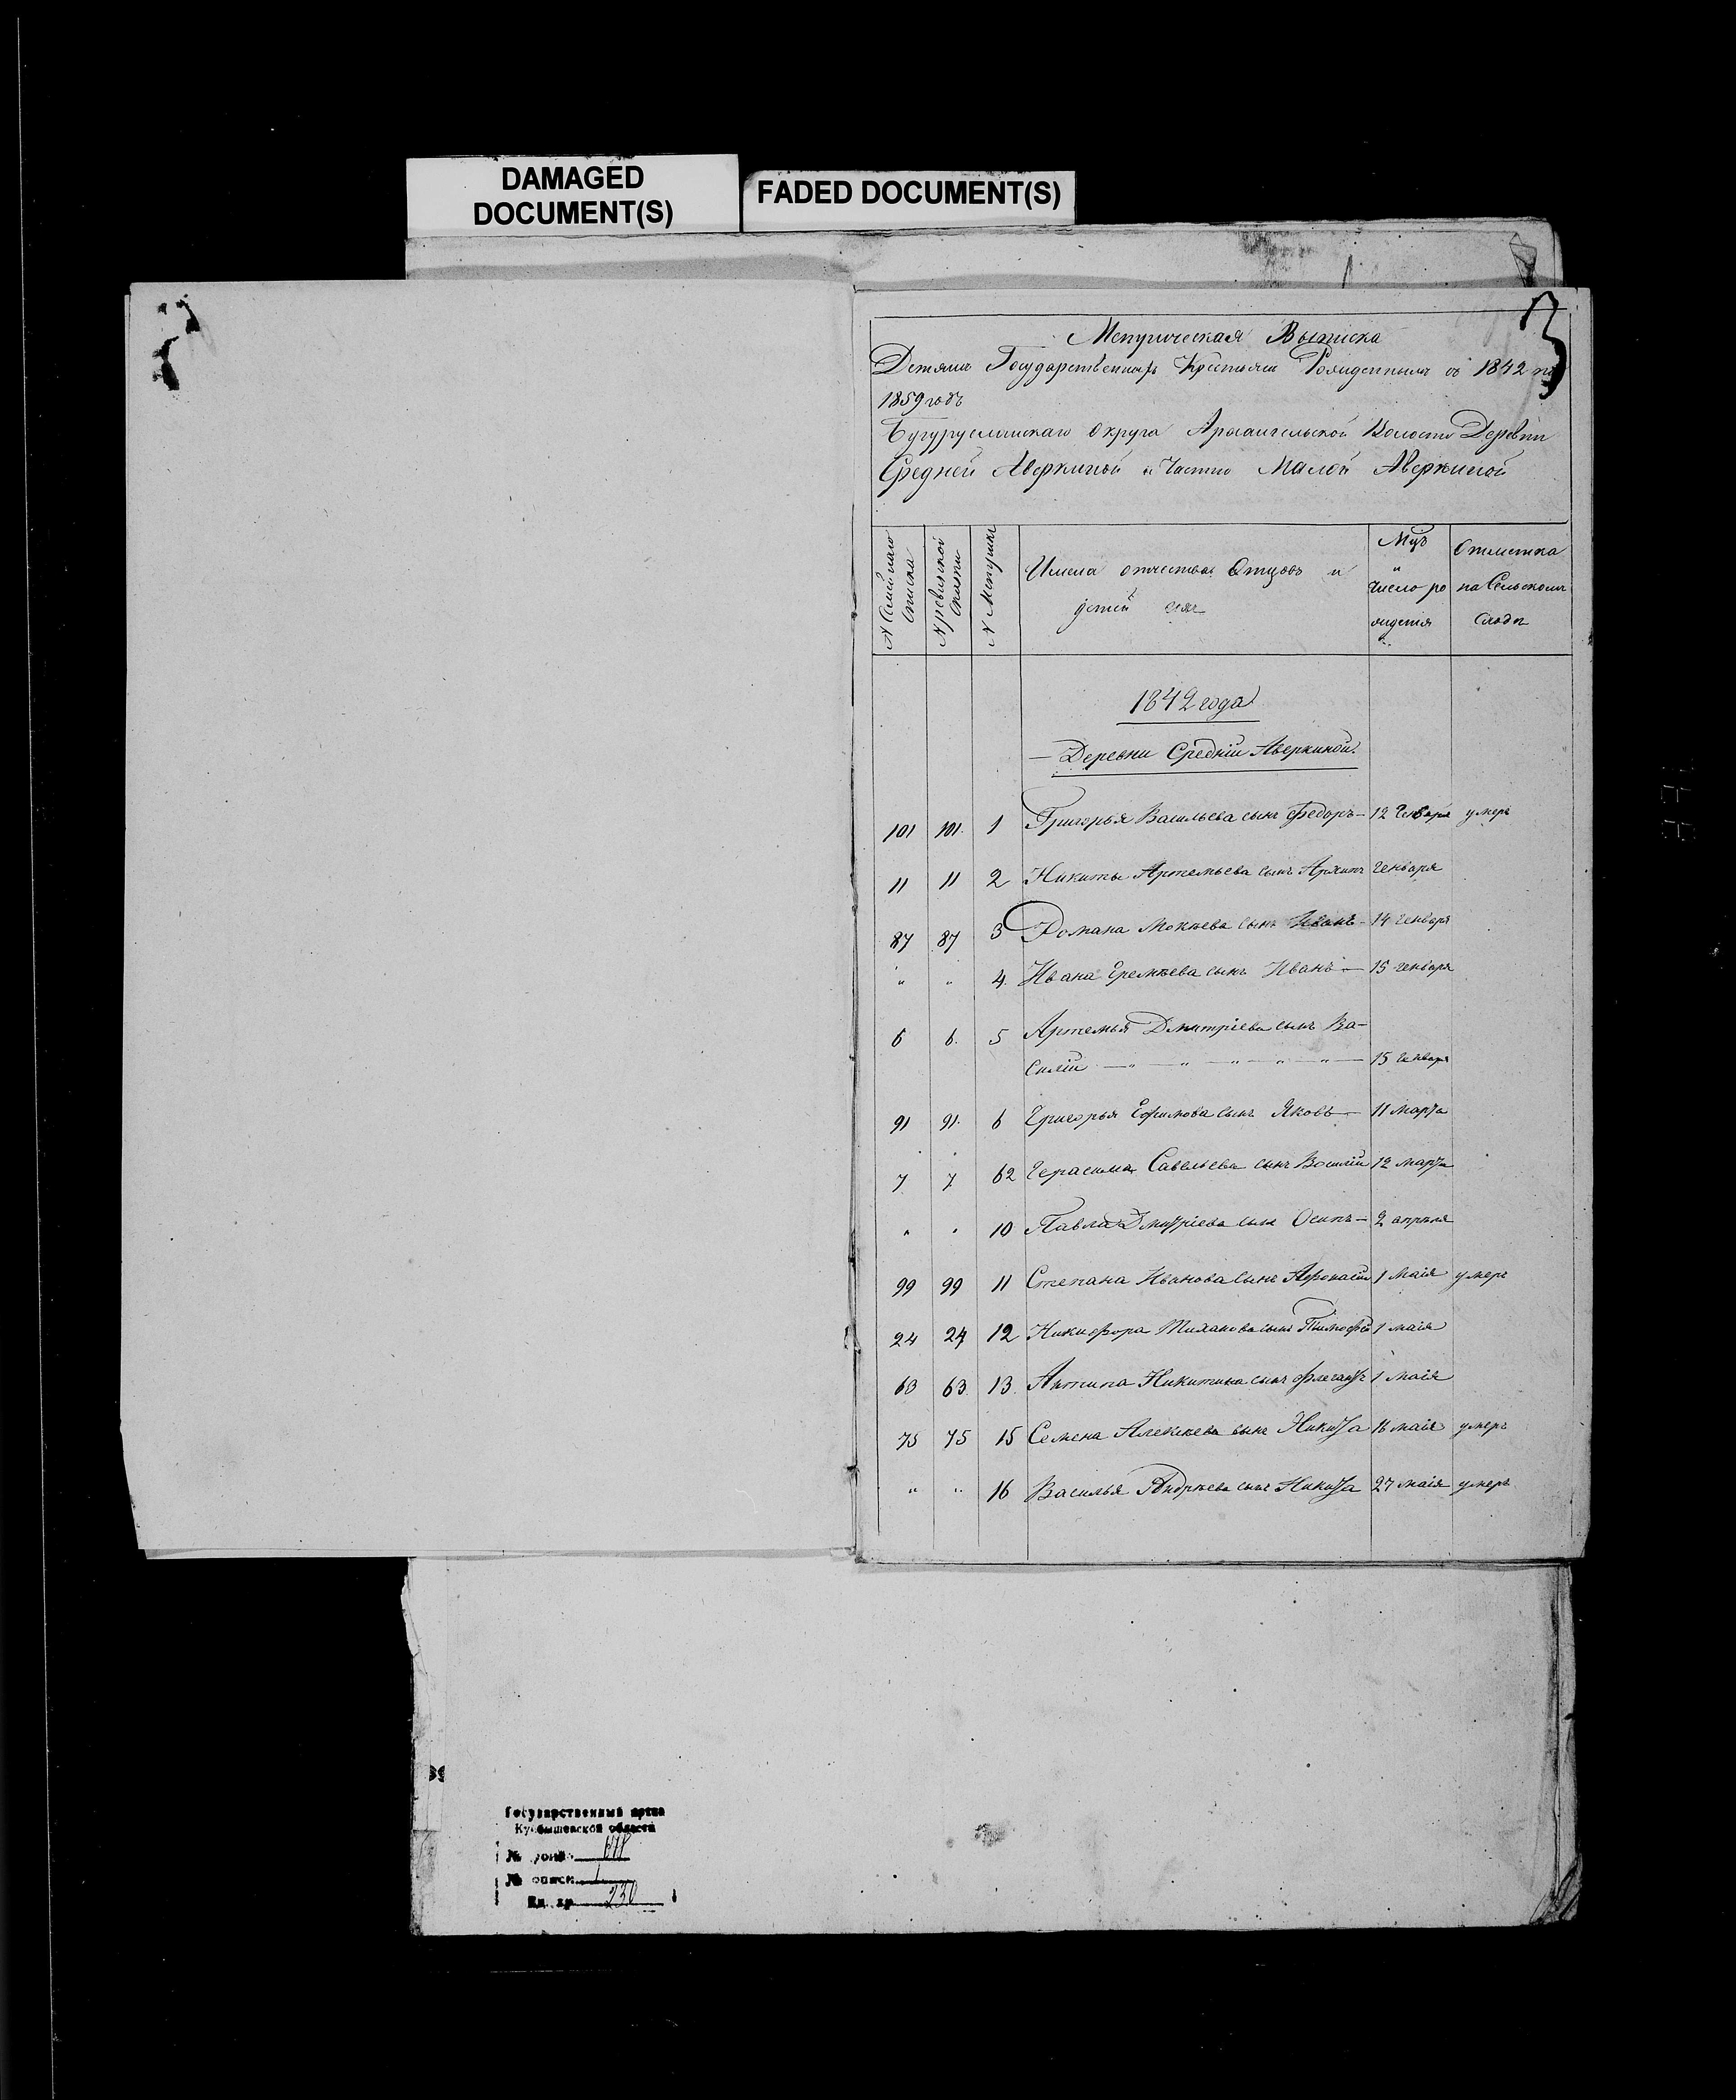 DAMAGED
DOCUMENT(S)
FADED DOCUMENT(S)
3
Метрическая Выписка
Детямъ Государственныхъ Крестьянъ Рожденнымъ съ 1842 по
1859 годъ
Бугурусланскаго Округа Архангельской Волости Деревни
Средней Аверкиной и Частию Малой Аверкиной
N Семейнаго Списка
N ревизской Скаски
N Метрикъ
Имена отчества Отцовъ и
детей ихъ
Мцъ
и
число ро
ждения
Отметка
на Сельскомъ
Сходе
1842 года
Деревни Средній Аверкиной
101 101. 1 Григорья Васильева сынъ Федоръ — 12 Генваря умеръ
11 11 2 Никиты Артемьева сынъ Архипъ Генваря
87 87 3 Романа Мокѣева сынъ Иванъ - 14 Генваря
" " 4. Ивана Еремѣева сынъ Иванъ — 15 генваря
6 6. 5 Артемья Дмитріева сынъ Ва-
силій — " — " — " — " — " — 15 Генваря
91 91. 6 Григорья Ефимова сынъ Яковъ — 11 Марта
7 7 62 Герасима Савельева сынъ Василій 12 марта
" " 10 Павла Дмитріева сынъ Осипъ — 2 апрѣля
99 99 11 Степана Иванова сынъ Афонасій 1 Маія умеръ
24 24 12 Никифора Тиханова сынъ Тимофей 1 маія
63 63. 13. Антипа Никитина сынъ 1 Маія
75 75 15 Семена Алексѣева сынъ Никита 16 маія умеръ
" " 16 Василья Андрѣева сынъ Никита 27 маія умеръ
Государственный архив
Куйбышевской области
№ фонда
№ описи 1
Ед. хр. 230